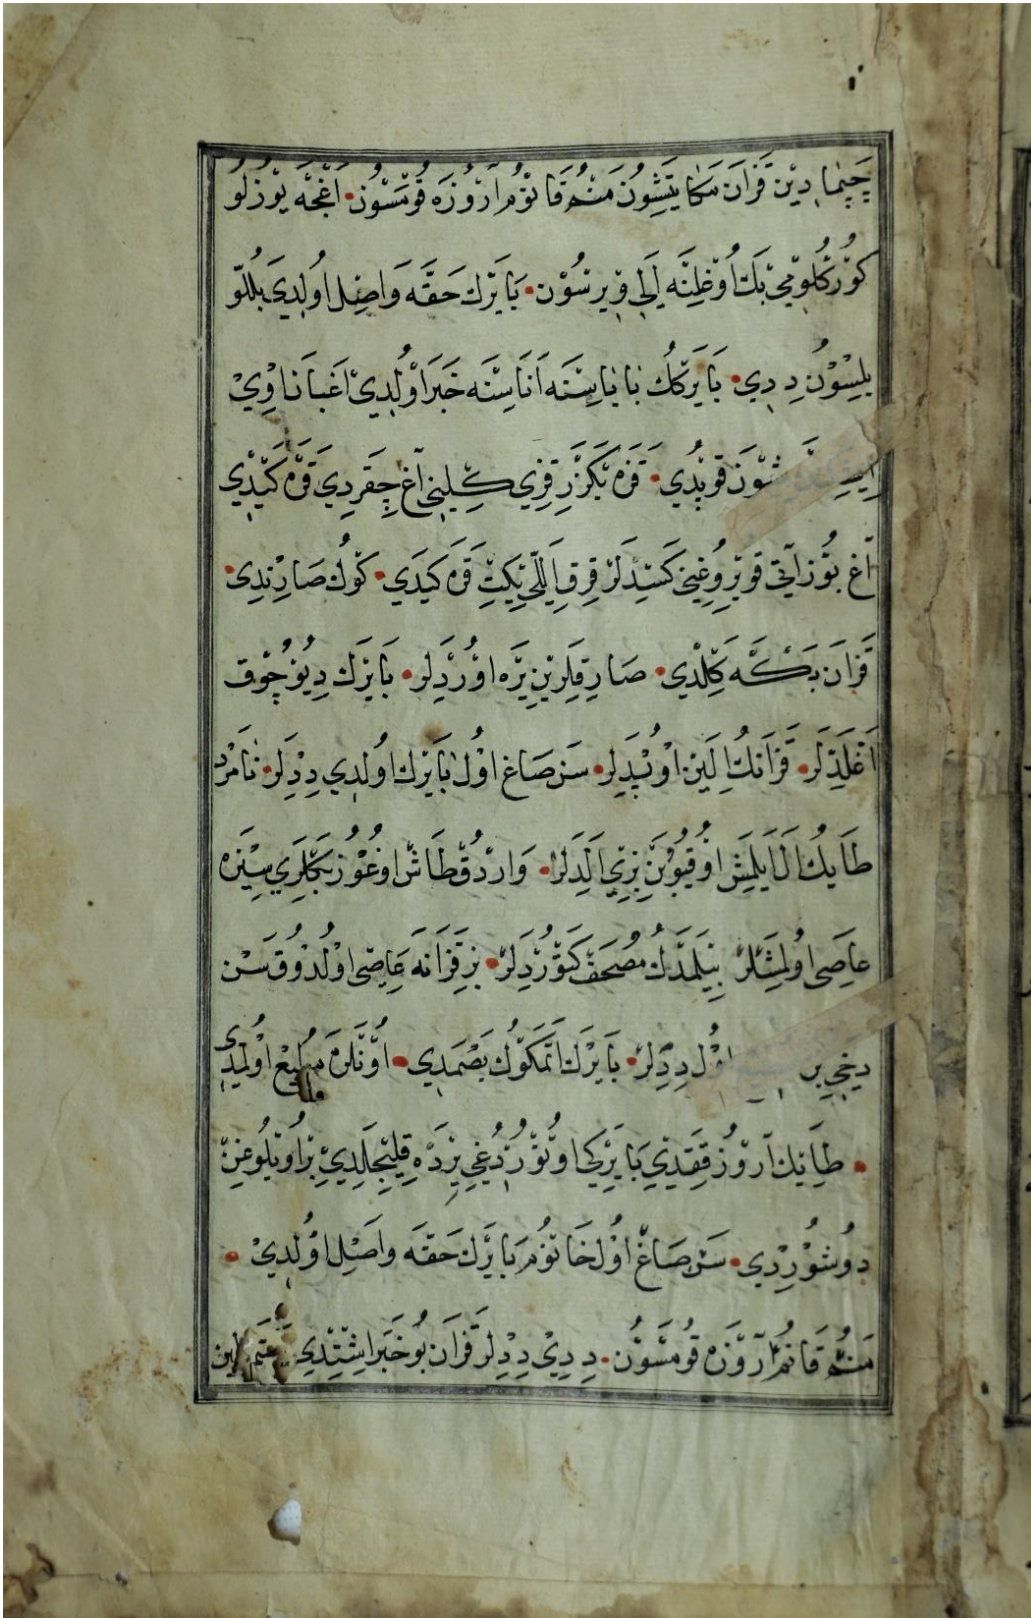 چَپِمَا دِيْن قَزَان مَكَا يَتِشْسُوْن مَنُمْ قَانُوُم آرُوْزَه قُومَسُوْن• اَغْجَه يُوْزلُو
كُوْرُكْلُومِيْ بَك اُوْغلِنَه اَلِيْ وِيْرسُوْن• بَايَرَك حَقَّه وَاصِل اُولدِيَ بَلُلّو
بلِسُوْن دِدِي• بَايَرَكُك بَابَاسِنَه اَنَاسِنَه خَبَر اُوْلدِيْ اَغبَان اَوِيْ
شِوَن قوپْدِي• قَزَه بَكَزَر قِزِي كَلِينِي آغ چِقَردِيَ قَرَه كَيْدِي
آغ بُوْز آتِيْ قويْرُوغِنِي كَسْدِلَر قِرِق اَللِّي يِكِتِ قَرَه كَيدِي• كَوُك صَارِنْدِي•
قَزَان بَكَه كَلْدِي• صَارِقلَرِيْن يِرَه اوُرْدِلَر• بَايَرَك دِيُو چُوْق
اَغْلَدِلَر• قَزَانُك اَلِيْن اوُپْدِلَر• سَن صَاغ اوُل بَايَرَك اُولدِي دِدِلَر• نَامَرْد
طَايِكُ اَلَ اَيْلَمِش اوُقِيُوبَن بِزِي اَلَدِلَر• وَاردُق طَاش اوغُوْز بَكْلَرِي سِيْزَه
عَاصِي اُولمِشلَر بِيْلمَدُك مُصْحَف كَتُوُرْدِلَر• بِز قَزَانَه عَاصِي اوْلُدوُق سَنْ
دَخِي بِر اوُل دِدِلَر• بَايَرَك اَتمَكُوُك بَصْمَدِي• اوُنلَرَه مُطِيْع اوْلمَدِي
• طَايِك آرُوْز قَقِدِيْ بَايَرَكِي اوُتُوْرُدُغِي يِرْدَه قِلِيْجلَدِيْ بِر اُويْلُوغِنْ
دوُشُوْرِدِي• سَن صَاغ اوُل خَانُوُم بَايَرَك حَقَه وَاصِل اوُلدِيْ •
مَنُمْ قَانُمْ آرُوْزَه قُومَسُوْن• دِدِيْ دِدِلَر قَزَان بُو خَبَر اِشِتْدِي